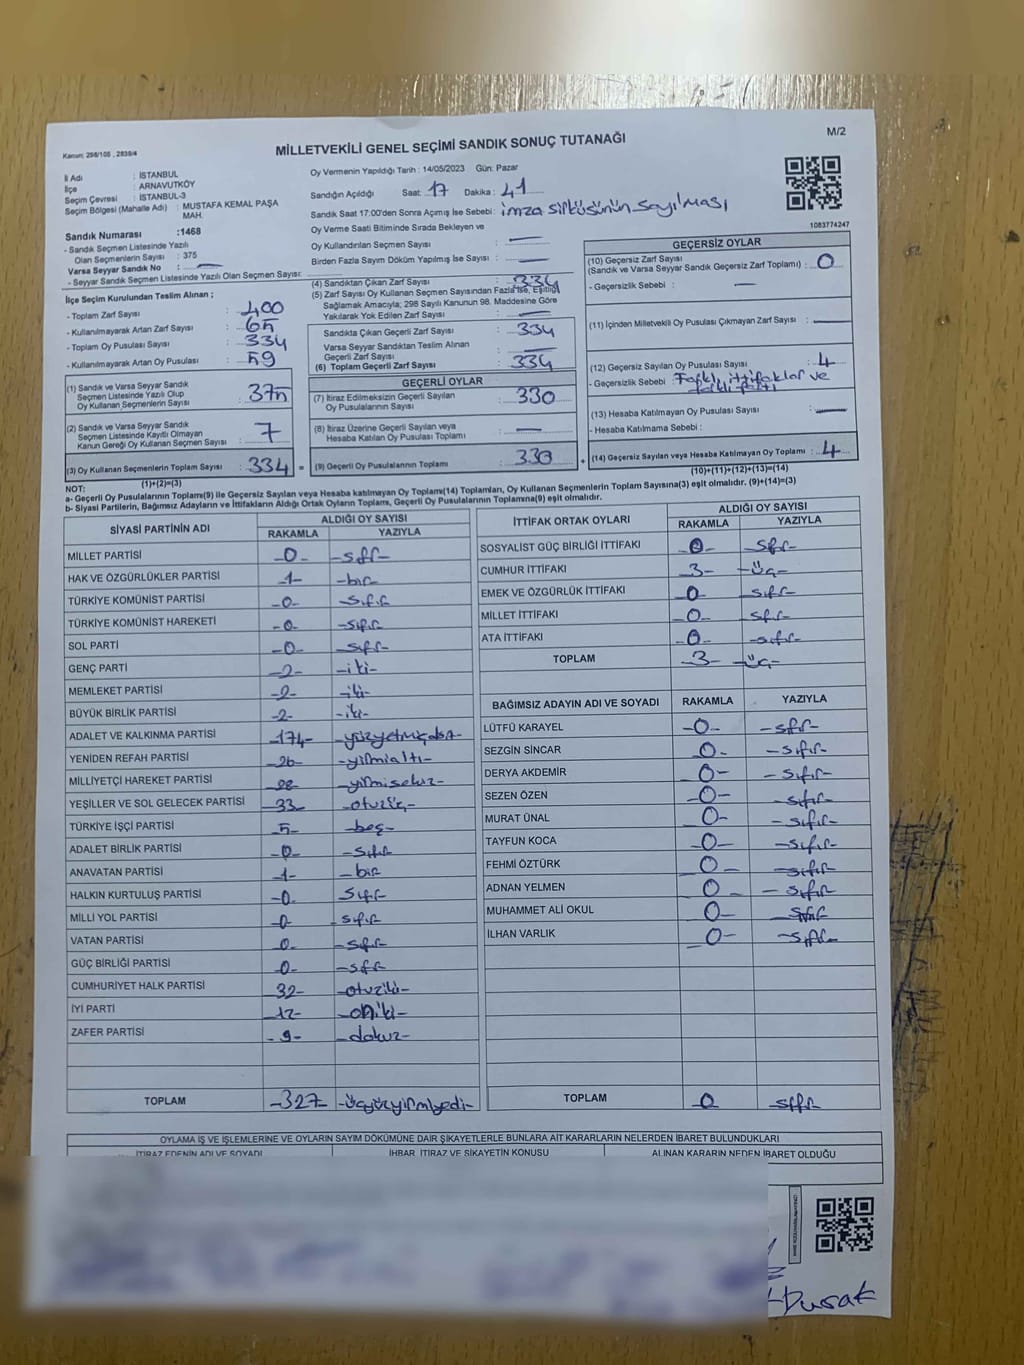 M/2
Kanun; 298/105 , 2839/4
MİLLETVEKİLİ GENEL SEÇİMİ SANDIK SONUÇ TUTANAĞI
İl Adı : İSTANBUL
İlçe : ARNAVUTKÖY
Seçim Çevresi : İSTANBUL-3
Seçim Bölgesi (Mahalle Adı) : MUSTAFA KEMAL PAŞA MAH.
Sandık Numarası :1468
- Sandık Seçmen Listesinde Yazılı
Olan Seçmen Sayısı : 375
Varsa Seyyar Sandık No : —
- Seyyar Sandık Seçmen Listesinde Yazılı Olan Seçmen Sayısı:
Oy Vermenin Yapıldığı Tarih : 14/05/2023 Gün: Pazar
Sandığın Açıldığı Saat: 17 Dakika : 41
Sandık Saat 17:00'den Sonra Açımış İse Sebebi: imza sirküsünün sayılması
Oy Verme Saati Bitiminde Sırada Bekleyen ve
Oy Kullandırılan Seçmen Sayısı : —
Birden Fazla Sayım Döküm Yapılmış İse Sayısı : —
1083774247
İlçe Seçim Kurulundan Teslim Alınan ;
- Toplam Zarf Sayısı : 400
- Kullanılmayarak Artan Zarf Sayısı : 65
- Toplam Oy Pusulası Sayısı : 334
- Kullanılmayarak Artan Oy Pusulası : 59
(1) Sandık ve Varsa Seyyar Sandık
Seçmen Listesinde Yazılı Olup
Oy Kullanan Seçmenlerin Sayısı : 375
(2) Sandık ve Varsa Seyyar Sandık
Seçmen Listesinde Kayıtlı Olmayan
Kanun Gereği Oy Kullanan Seçmen Sayısı : 7
(3) Oy Kullanan Seçmenlerin Toplam Sayısı : 334 =
(1)+(2)=(3)
(4) Sandıktan Çıkan Zarf Sayısı : 334
(5) Zarf Sayısı Oy Kullanan Seçmen Sayısından Fazla İse, Eşitliği
Sağlamak Amacıyla; 298 Sayılı Kanunun 98. Maddesine Göre
Yakılarak Yok Edilen Zarf Sayısı : —
Sandıkta Çıkan Geçerli Zarf Sayısı : 334
Varsa Seyyar Sandıktan Teslim Alınan
Geçerli Zarf Sayısı : —
(6) Toplam Geçerli Zarf Sayısı : 334
GEÇERLİ OYLAR
(7) İtiraz Edilmeksizin Geçerli Sayılan
Oy Pusulalarının Sayısı : 330
(8) İtiraz Üzerine Geçerli Sayılan veya
Hesaba Katılan Oy Pusulası Toplamı : —
(9) Geçerli Oy Pusulalarının Toplamı : 330 +
GEÇERSİZ OYLAR
(10) Geçersiz Zarf Sayısı
(Sandık ve Varsa Seyyar Sandık Geçersiz Zarf Toplamı) : 0
- Geçersizlik Sebebi : —
(11) İçinden Milletvekili Oy Pusulası Çıkmayan Zarf Sayısı : —
(12) Geçersiz Sayılan Oy Pusulası Sayısı : 4
- Geçersizlik Sebebi : Farklı ittifaklar ve
farklı parti
(13) Hesaba Katılmayan Oy Pusulası Sayısı : —
- Hesaba Katılmama Sebebi :
(14) Geçersiz Sayılan veya Hesaba Katılmayan Oy Toplamı : 4
(10)+(11)+(12)+(13)=(14)
NOT:
a- Geçerli Oy Pusulalarının Toplamı(9) ile Geçersiz Sayılan veya Hesaba katılmayan Oy Toplamı(14) Toplamları, Oy Kullanan Seçmenlerin Toplam Sayısına(3) eşit olmalıdır. (9)+(14)=(3)
b- Siyasi Partilerin, Bağımsız Adayların ve İttifakların Aldığı Ortak Oyların Toplamı, Geçerli Oy Pusulalarının Toplamına(9) eşit olmalıdır.
SİYASİ PARTİNİN ADI ALDIĞI OY SAYISI
RAKAMLA YAZIYLA
MİLLET PARTİSİ -0- -sıfır-
HAK VE ÖZGÜRLÜKLER PARTİSİ -1- -bir-
TÜRKİYE KOMÜNİST PARTİSİ -0- -sıfır
TÜRKİYE KOMÜNİST HAREKETİ -0- -sıfır
SOL PARTİ -0- -sıfır-
GENÇ PARTİ -2- -iki-
MEMLEKET PARTİSİ -2- -iki-
BÜYÜK BİRLİK PARTİSİ -2- -iki-
ADALET VE KALKINMA PARTİSİ -174- -yüzyetmişdört-
YENİDEN REFAH PARTİSİ -26- -yirmialtı-
MİLLİYETÇİ HAREKET PARTİSİ -28- -yirmisekiz-
YEŞİLLER VE SOL GELECEK PARTİSİ -33- -otuzüç-
TÜRKİYE İŞÇİ PARTİSİ -5- -beş-
ADALET BİRLİK PARTİSİ -0- -sıfır
ANAVATAN PARTİSİ -1- -bir
HALKIN KURTULUŞ PARTİSİ -0- sıfır-
MİLLİ YOL PARTİSİ -0- -sıfır
VATAN PARTİSİ -0- -sıfır-
GÜÇ BİRLİĞİ PARTİSİ -0- -sıfır-
CUMHURİYET HALK PARTİSİ -32- -otuziki-
İYİ PARTİ -12- -oniki-
ZAFER PARTİSİ -9- -dokuz-
TOPLAM -327- -üçyüzyirmiyedi-
İTTİFAK ORTAK OYLARI ALDIĞI OY SAYISI
RAKAMLA YAZIYLA
SOSYALİST GÜÇ BİRLİĞİ İTTİFAKI -0- sıfır-
CUMHUR İTTİFAKI -3- -üç-
EMEK VE ÖZGÜRLÜK İTTİFAKI -0- sıfır-
MİLLET İTTİFAKI -0- sıfır-
ATA İTTİFAKI -0- -sıfır-
TOPLAM -3- -üç-
BAĞIMSIZ ADAYIN ADI VE SOYADI RAKAMLA YAZIYLA
LÜTFÜ KARAYEL -0- -sıfır-
SEZGİN SİNCAR 0- -sıfır-
DERYA AKDEMİR 0- -sıfır-
SEZEN ÖZEN -0- -sıfır-
MURAT ÜNAL 0- -sıfır-
TAYFUN KOCA -0- -sıfır-
FEHMİ ÖZTÜRK 0- -sıfır-
ADNAN YELMEN 0- -sıfır-
MUHAMMET ALİ OKUL 0- sıfır
İLHAN VARLIK -0- -sıfır-
TOPLAM -0 -sıfır-
OYLAMA İŞ VE İŞLEMLERİNE VE OYLARIN SAYIM DÖKÜMÜNE DAİR ŞİKAYETLERLE BUNLARA AİT KARARLARIN NELERDEN İBARET BULUNDUKLARI
İTİRAZ EDENİN ADI VE SOYADI İHBAR, İTİRAZ VE ŞİKAYETİN KONUSU ALINAN KARARIN NEDEN İBARET OLDUĞU
Dusak